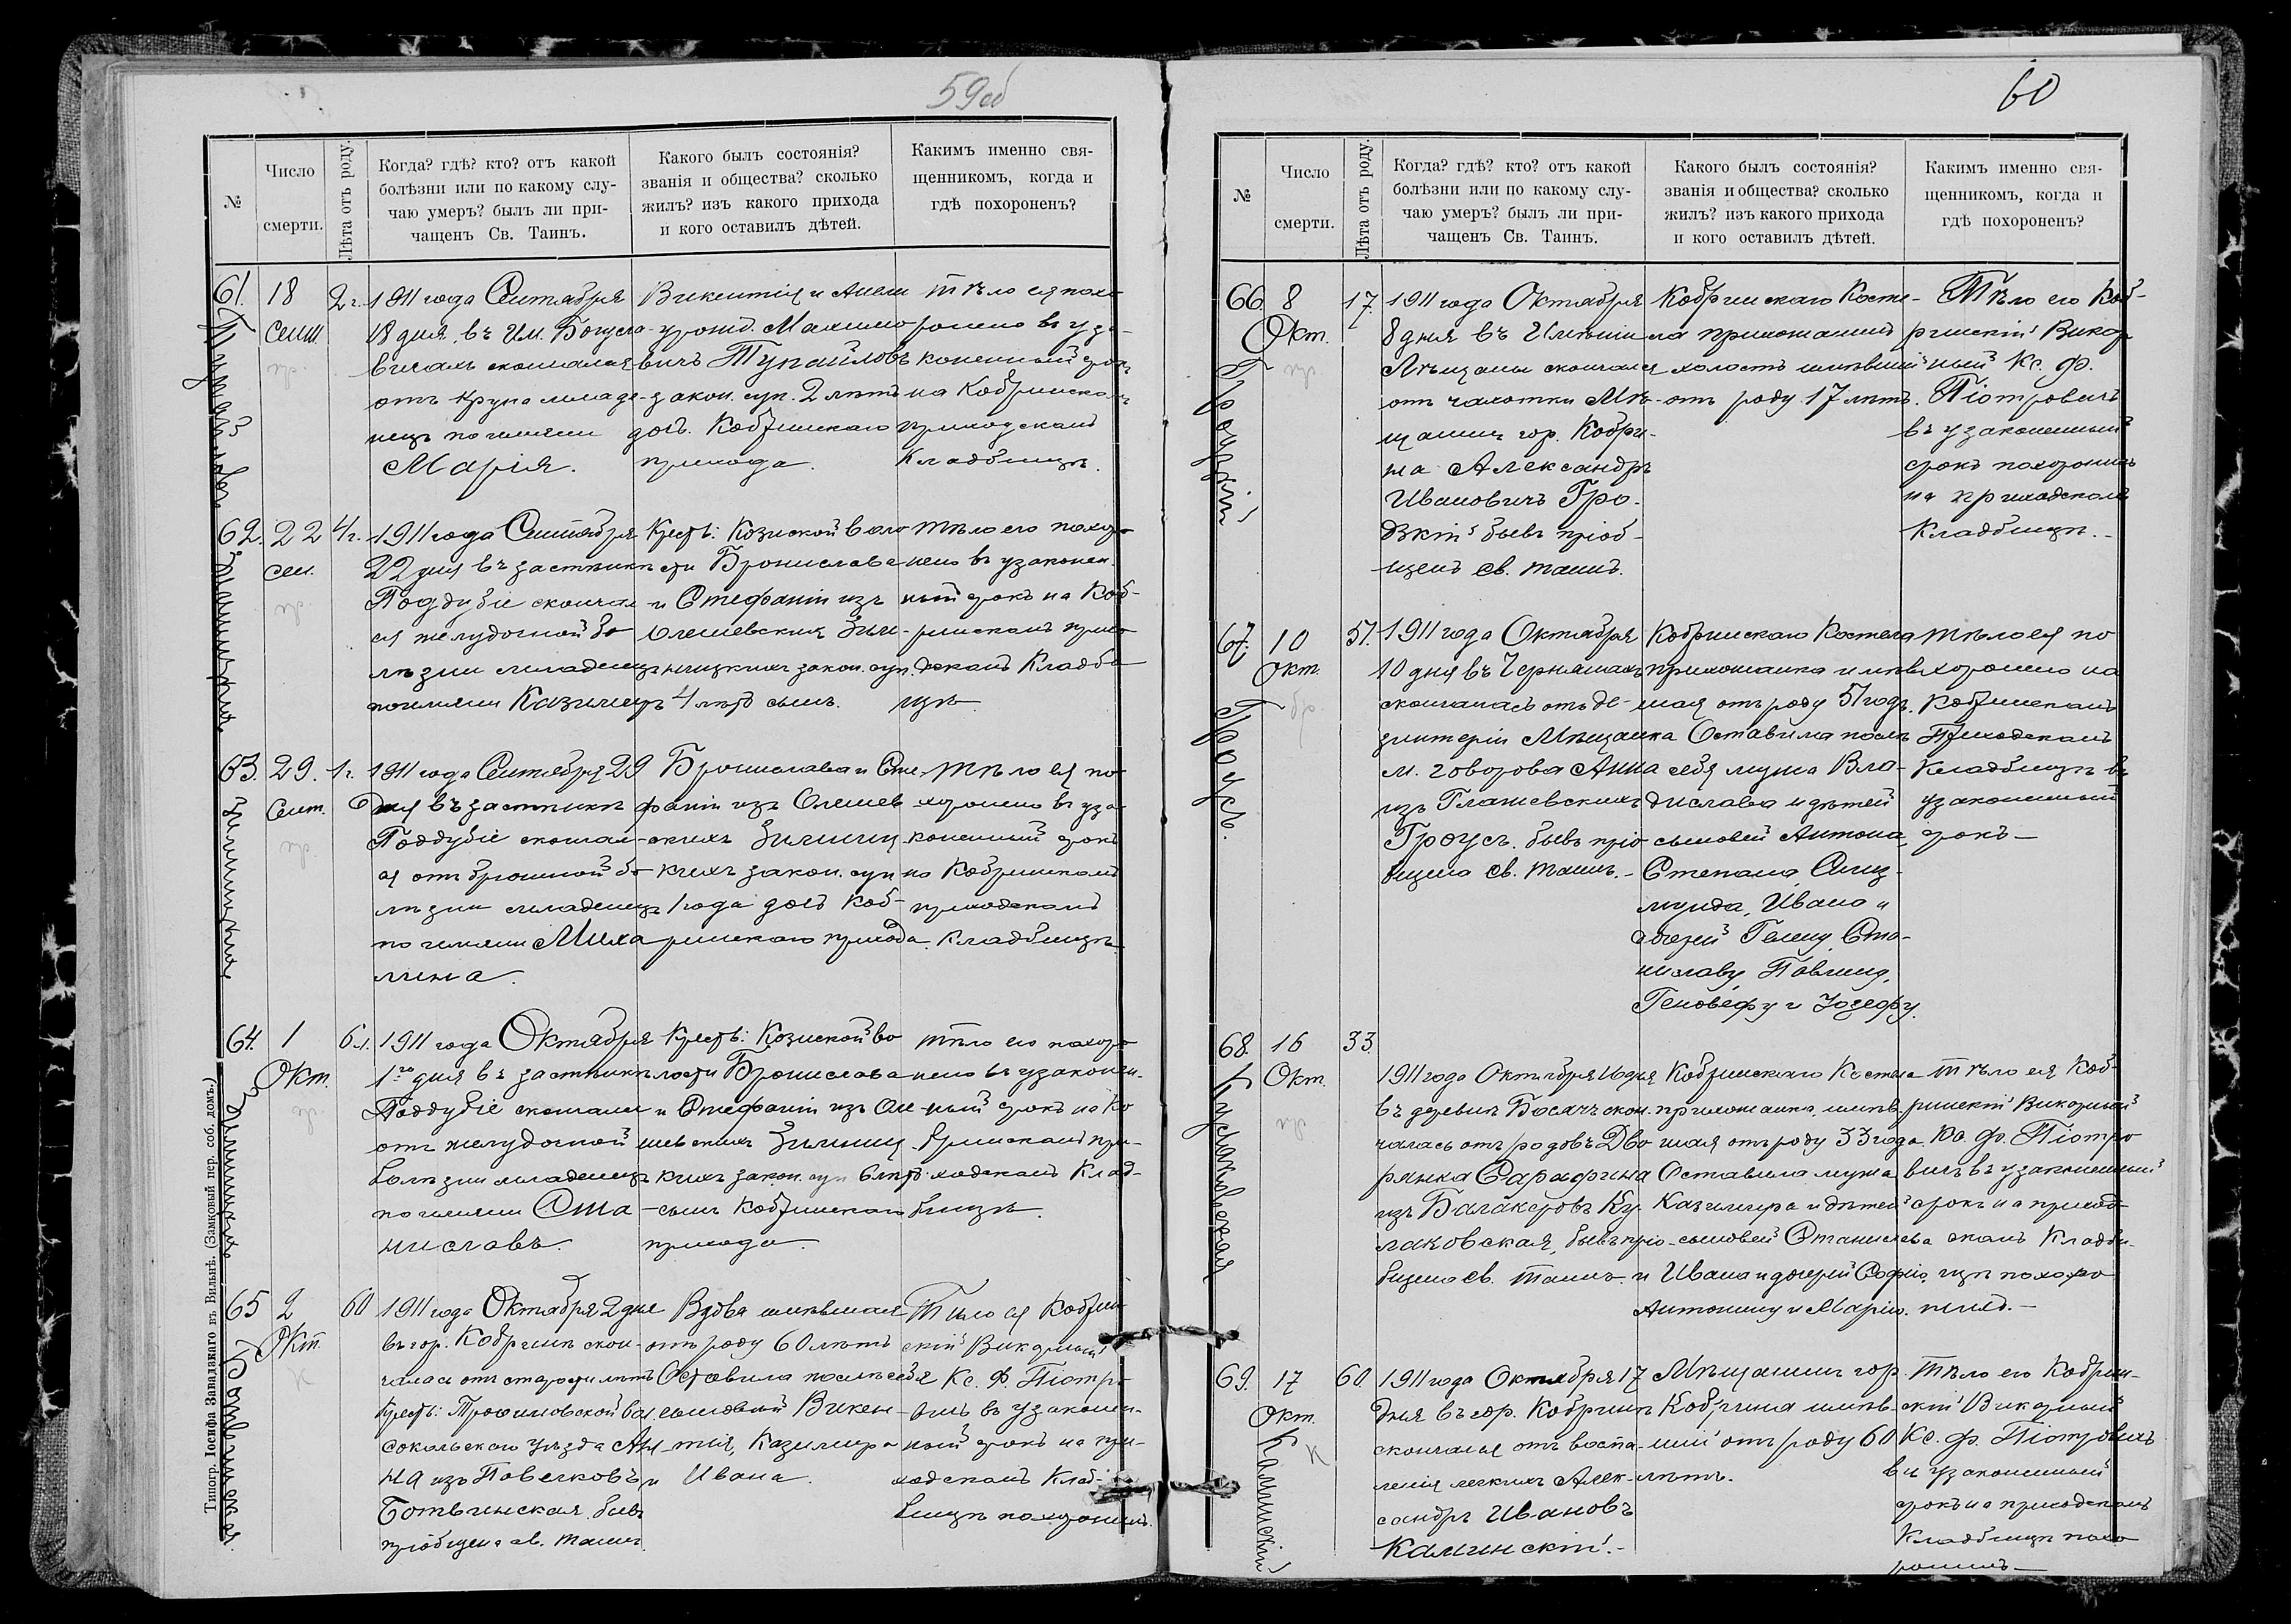 59об
№
Число
смерти.
Лѣта отъ роду.
Когда? гдѣ? кто? отъ какой
болѣзни или по какому слу-
чаю умеръ? былъ ли при-
чащенъ Св. Таинъ.
Какого былъ состоянія?
званія и общества? сколько
жилъ? изъ какого прихода
и кого оставилъ дѣтей.
Какимъ именно свя-
щенникомъ, когда и
гдѣ похороненъ?
61.
18
Сент.
2 г.
1911 года Сентября
18 дня въ Им. Богусла-
вичахъ скончался
отъ крупа младе-
нецъ по имени
Марія.
Викентія и Анели
урожд. Малино
вичъ Тупайловъ
закон. суп. 2 лѣтъ
дочь. Кобринскаго
прихода.
тѣло ея похо
ронено въ уза-
коненный срокъ
на Кобринском
приходскомъ
Кладбищѣ.
62.
22
Сен.
4 г.
1911 года Сентября
22 дня въ застѣнкѣ
Поддубіе сконча
ся желудочной бо
лѣзни младенецъ
по имени Казимиръ
Крест: Козиской воло
сти Бронислава
и Стефаніи изъ
Олешевскихъ Зили-
ницкихъ закон. суп.
4 лѣтъ сынъ.
тѣло его похоро
нено въ узаконен.
ный срокъ на Коб-
ринскомъ прихо
дскомъ Кладби
щѣ.
63.
29.
Сент.
1 г.
1911 года Сентября 29
дня въ застѣнкѣ
Поддубіе скончал-
ся отъ брюшной бо
лѣзни младенецъ
по имени Миха
лина.
Бронислава и Сте-
фаніи изъ Олешев
скихъ Зилиниц
кихъ закон. суп
1 года дочь Коб-
ринскаго прихода
тѣло ея по-
хоронено въ уза-
коненный срокъ
на Кобринскомъ
приходскомъ
Кладбищѣ
64.
1
Окт.
6 л.
1911 года Октября
1го дня въ застѣнкѣ
Поддубіе скончал
отъ желудочной
болѣзни младенецъ
по имени Ста-
ниславъ.
Крест: Козиской во
лости Бронислава
и Стефаніи изъ Оле
шевскихъ Зилиниц
кихъ закон. суп 6 лѣтъ
сынъ Кобринскаго
прихода.
тѣло его похоро
нено въ узаконен.
ный срокъ на Ко
бринскомъ при-
ходскомъ Клад-
бищѣ.
65
2
Окт.
60
1911 года Октября 2 дня
въ гор. Кобринѣ скон-
чалась отъ старости лѣтъ
Крест: Трохимовской вол
Сокольскаго уѣзда Ан-
на изъ Павелковъ
Ботвинская, бывъ
пріобщена св. таинъ.
Вдова жившая
отъ роду 60 лѣтъ
Оставила послѣ себя
сыновей Викен-
тія, Казимира
и Ивана.
Тѣло ея Кобрин
скій Викарный
Кс. Ф. Піотро
вичъ въ узаконен-
ный срокъ на при-
ходскомъ Клад-
бищѣ похоронилъ.
Ботвинская.
Типогр. Іосифа Завадзкаго въ Вильнѣ. (Замковый пер. соб. домъ.)
60
№
Число
смерти.
Лѣта отъ роду.
Когда? гдѣ? кто? отъ какой
болѣзни или по какому слу-
чаю умеръ? былъ ли при-
чащенъ Св. Таинъ.
Какого былъ состоянія?
званія и общества? сколько
жилъ? изъ какого прихода
и кого оставилъ дѣтей.
Какимъ именно свя-
щенникомъ, когда и
гдѣ похороненъ?
66
8
Окт.
17.
1911 года Октября
8 дня въ Имѣніи
Лѣщаны скончался
отъ чахотки Мѣ-
щанинъ гор. Кобри-
на Александръ
Ивановичъ Гро-
дзкій бывъ пріоб-
щенъ св. таинъ.
Кобринскаго Косте-
ла прихожанинъ
холостъ жившій
отъ роду 17 лѣтъ.
Тѣло его Коб-
ринскій Викар
ный Кс. Ф.
Піотровичъ
въ узаконенный
срокъ похоронилъ
на приходскомъ
Кладбищѣ.-
Гродзкій
67.
10
Окт.
51.
1911 года Октября
10 дня въ Чернянахъ
скончалась отъ де-
зинтеріи Мѣщанка
м. Говорова Анна
изъ Глашевскихъ
Гроусъ. бывъ прі
общена св. таинъ.-
Кобринскаго Костела
прихожанка и жив
шая отъ роду 51 годъ.
Оставила послѣ
себя мужа Вла-
дислава и дѣтей
сыновей Антона,
Степана, Сиги-
мунда, Ивана и
дочерей Гелену, Ста-
ниславу, Павлину,
Геновефу и Юзефу.
тѣло ея по
хоронено на
Кобринскомъ
Приходскомъ
Кладбищѣ въ
узаконенный
срокъ-
Гроусъ.
68.
16
Окт.
33.
1911 года Октября 16 дня
въ деревнѣ Босячъ скон.
чалась отъ родовъ Дво
рянка Сарафина
изъ Балакеровъ Ку
лаковская, бывъ прі
общена св. таинъ-
Кобринскаго Костела
прихожанка, жив
шая отъ роду 33 года.
Оставила мужа
Казимира и дѣтей
сыновей Станислава
и Ивана и дочерей Софію,
Антонину и Марію.
тѣло ея Коб-
ринскій Викарный
Кс. Ф. Піотро
вичъ въ узаконенный
срокъ на приход
скомъ Кладби-
щѣ похоро
нилъ.-
Кулаковская
69.
17
Окт.
60.
1911 года Октября 17
дня въ гор. Кобринѣ
скончался отъ воспа-
ленія легкихъ Алек-
сандръ Ивановъ
Калинскій.-
Мѣщанинъ гор.
Кобрина жив-
шій отъ роду 60
лѣтъ.
Тѣло его Кобрин-
скій Викарный
Кс. Ф. Піотровичъ
въ узаконенный
срокъ на приходскомъ
Кладбищѣ похо
ронилъ-
Калинскій